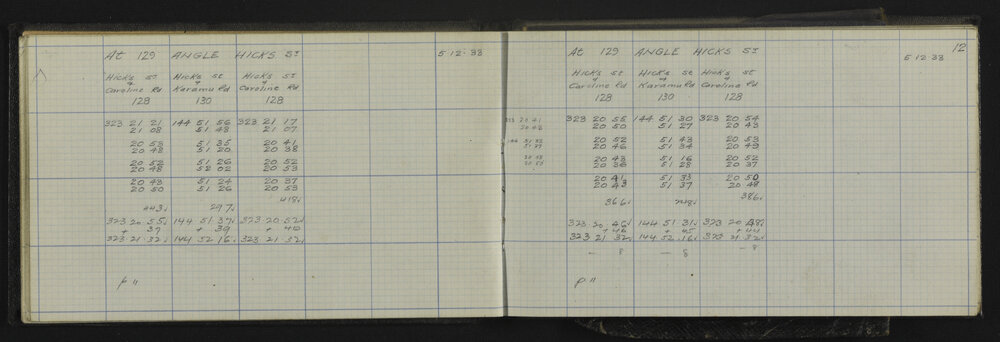 At 129 ANGLE HICKS ST
5 12 · 33
Hicks St Hicks St Hicks St
& & &
Caroline Rd Karamu Rd Caroline Rd
128 130 128
323 21 21 144 51 56 323 21 17
21 08 51 48 21 07
20 53 51 35 20 41
20 48 51 20 20 38
20 52 51 26 20 52
20 48 52 02 20 53
20 43 51 24 20 37
20 50 51 26 20 53
443 297 418
323 20 55 144 51 37 323 20 52
+ 37 + 39 + 40
323 21 32 144 52 16 323 21 32
p "
12
At 129 ANGLE HICKS ST
5 12 33
Hicks St Hicks St Hicks St
& & &
Caroline Rd Karamu Rd Caroline Rd
128 130 128
323 20 41 323 20 55 144 51 30 323 20 54
20 50 51 27 20 43
20 52 51 43 20 53
20 46 51 34 20 49
20 43 51 16 20 52
20 36 51 28 20 37
20 41 51 33 20 50
20 43 51 37 20 48
366 248 386
323 20 46 144 51 31 323 20 48
+ 46 + 45 + 44
323 21 32 144 52 16 323 21 32
— 8 — 8 — 8
p "